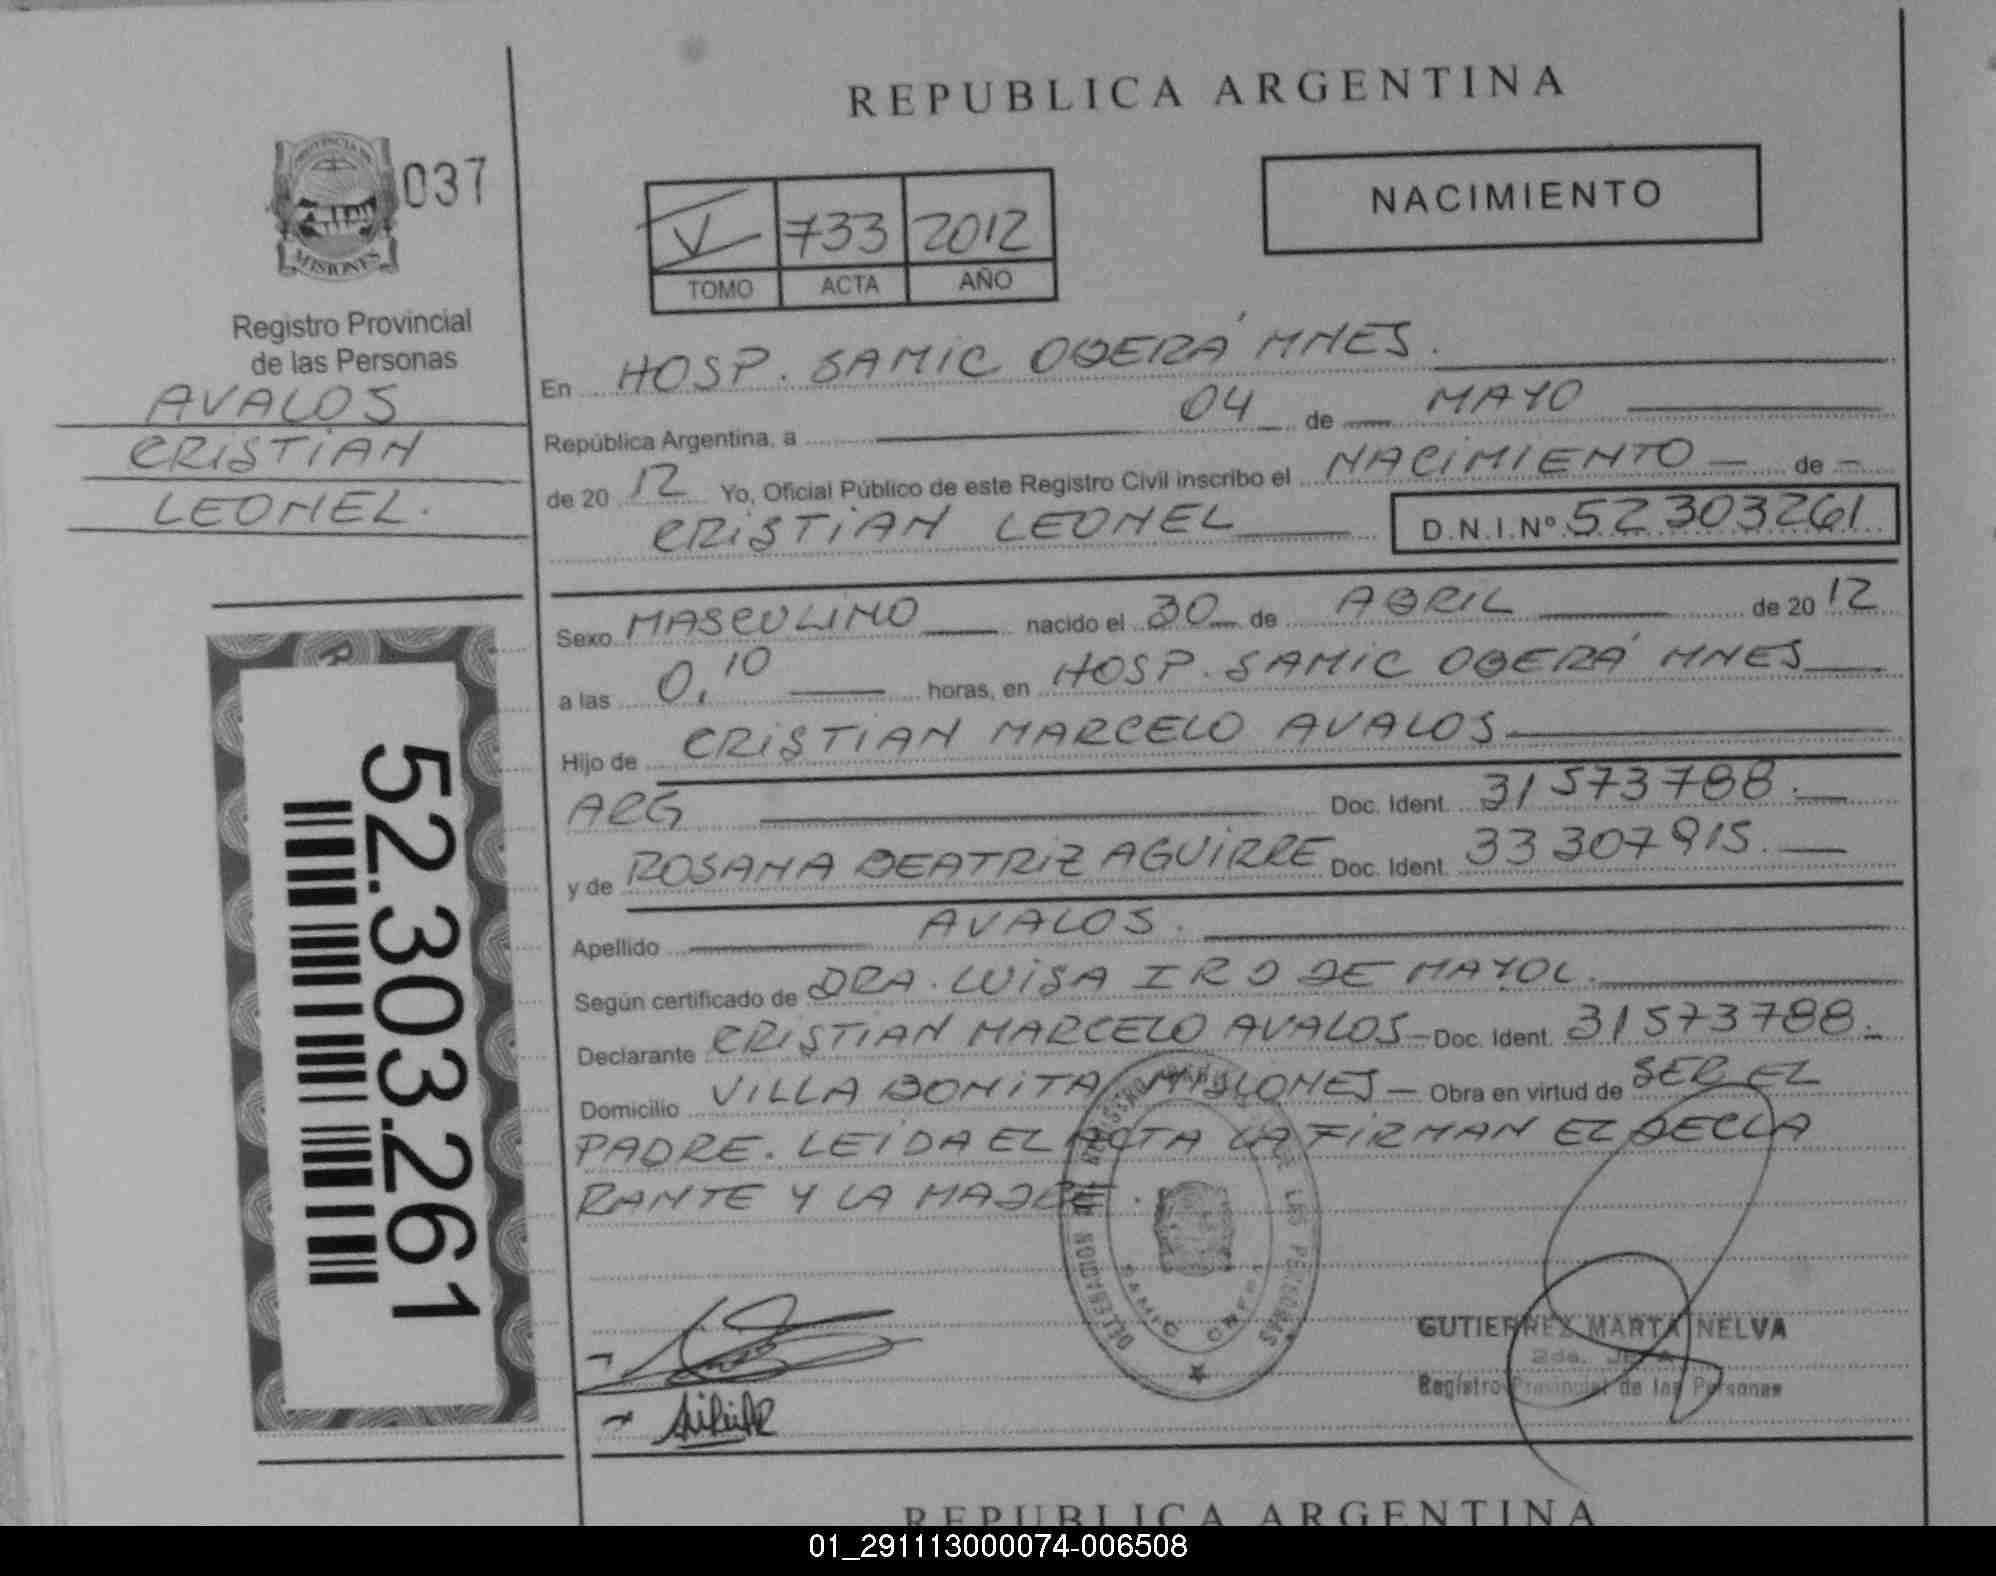 REPUBLICA ARGENTINA
PROVINCIA DE
MISIONES
037
Registro Provincial
de las Personas
AVALOS
CRISTIAN
LEONEL.
52.303.261
V 733 2012
TOMO ACTA AÑO
NACIMIENTO
En HOSP. SAMIC OBERÁ MNES.
República Argentina, a 04 de MAYO
de 20 12 Yo, Oficial Público de este Registro Civil inscribo el NACIMIENTO de
CRISTIAN LEONEL D.N.I.Nº 52303261
Sexo MASCULINO nacido el 30 de ABRIL de 20 12
a las 0,10 horas, en HOSP. SAMIC OBERÁ MNES
Hijo de CRISTIAN MARCELO AVALOS
ARG Doc. Ident. 31573788.
y de ROSANA BEATRIZ AGUIRRE Doc. Ident. 33307915.
Apellido AVALOS.
Según certificado de DRA. LUISA IRO DE MAYOL.
Declarante CRISTIAN MARCELO AVALOS Doc. Ident. 31573788.
Domicilio VILLA BONITA MISIONES Obra en virtud de SER EL
PADRE. LEIDA EL ACTA LA FIRMAN EL DECLA
RANTE Y LA MADRE.
DELEGACION DEL REGISTRO DE LAS PERSONAS
GUTIERREZ MARTA NELVA
Registro Provincial de las Personas
REPUBLICA ARGENTINA
01_291113000074-006508